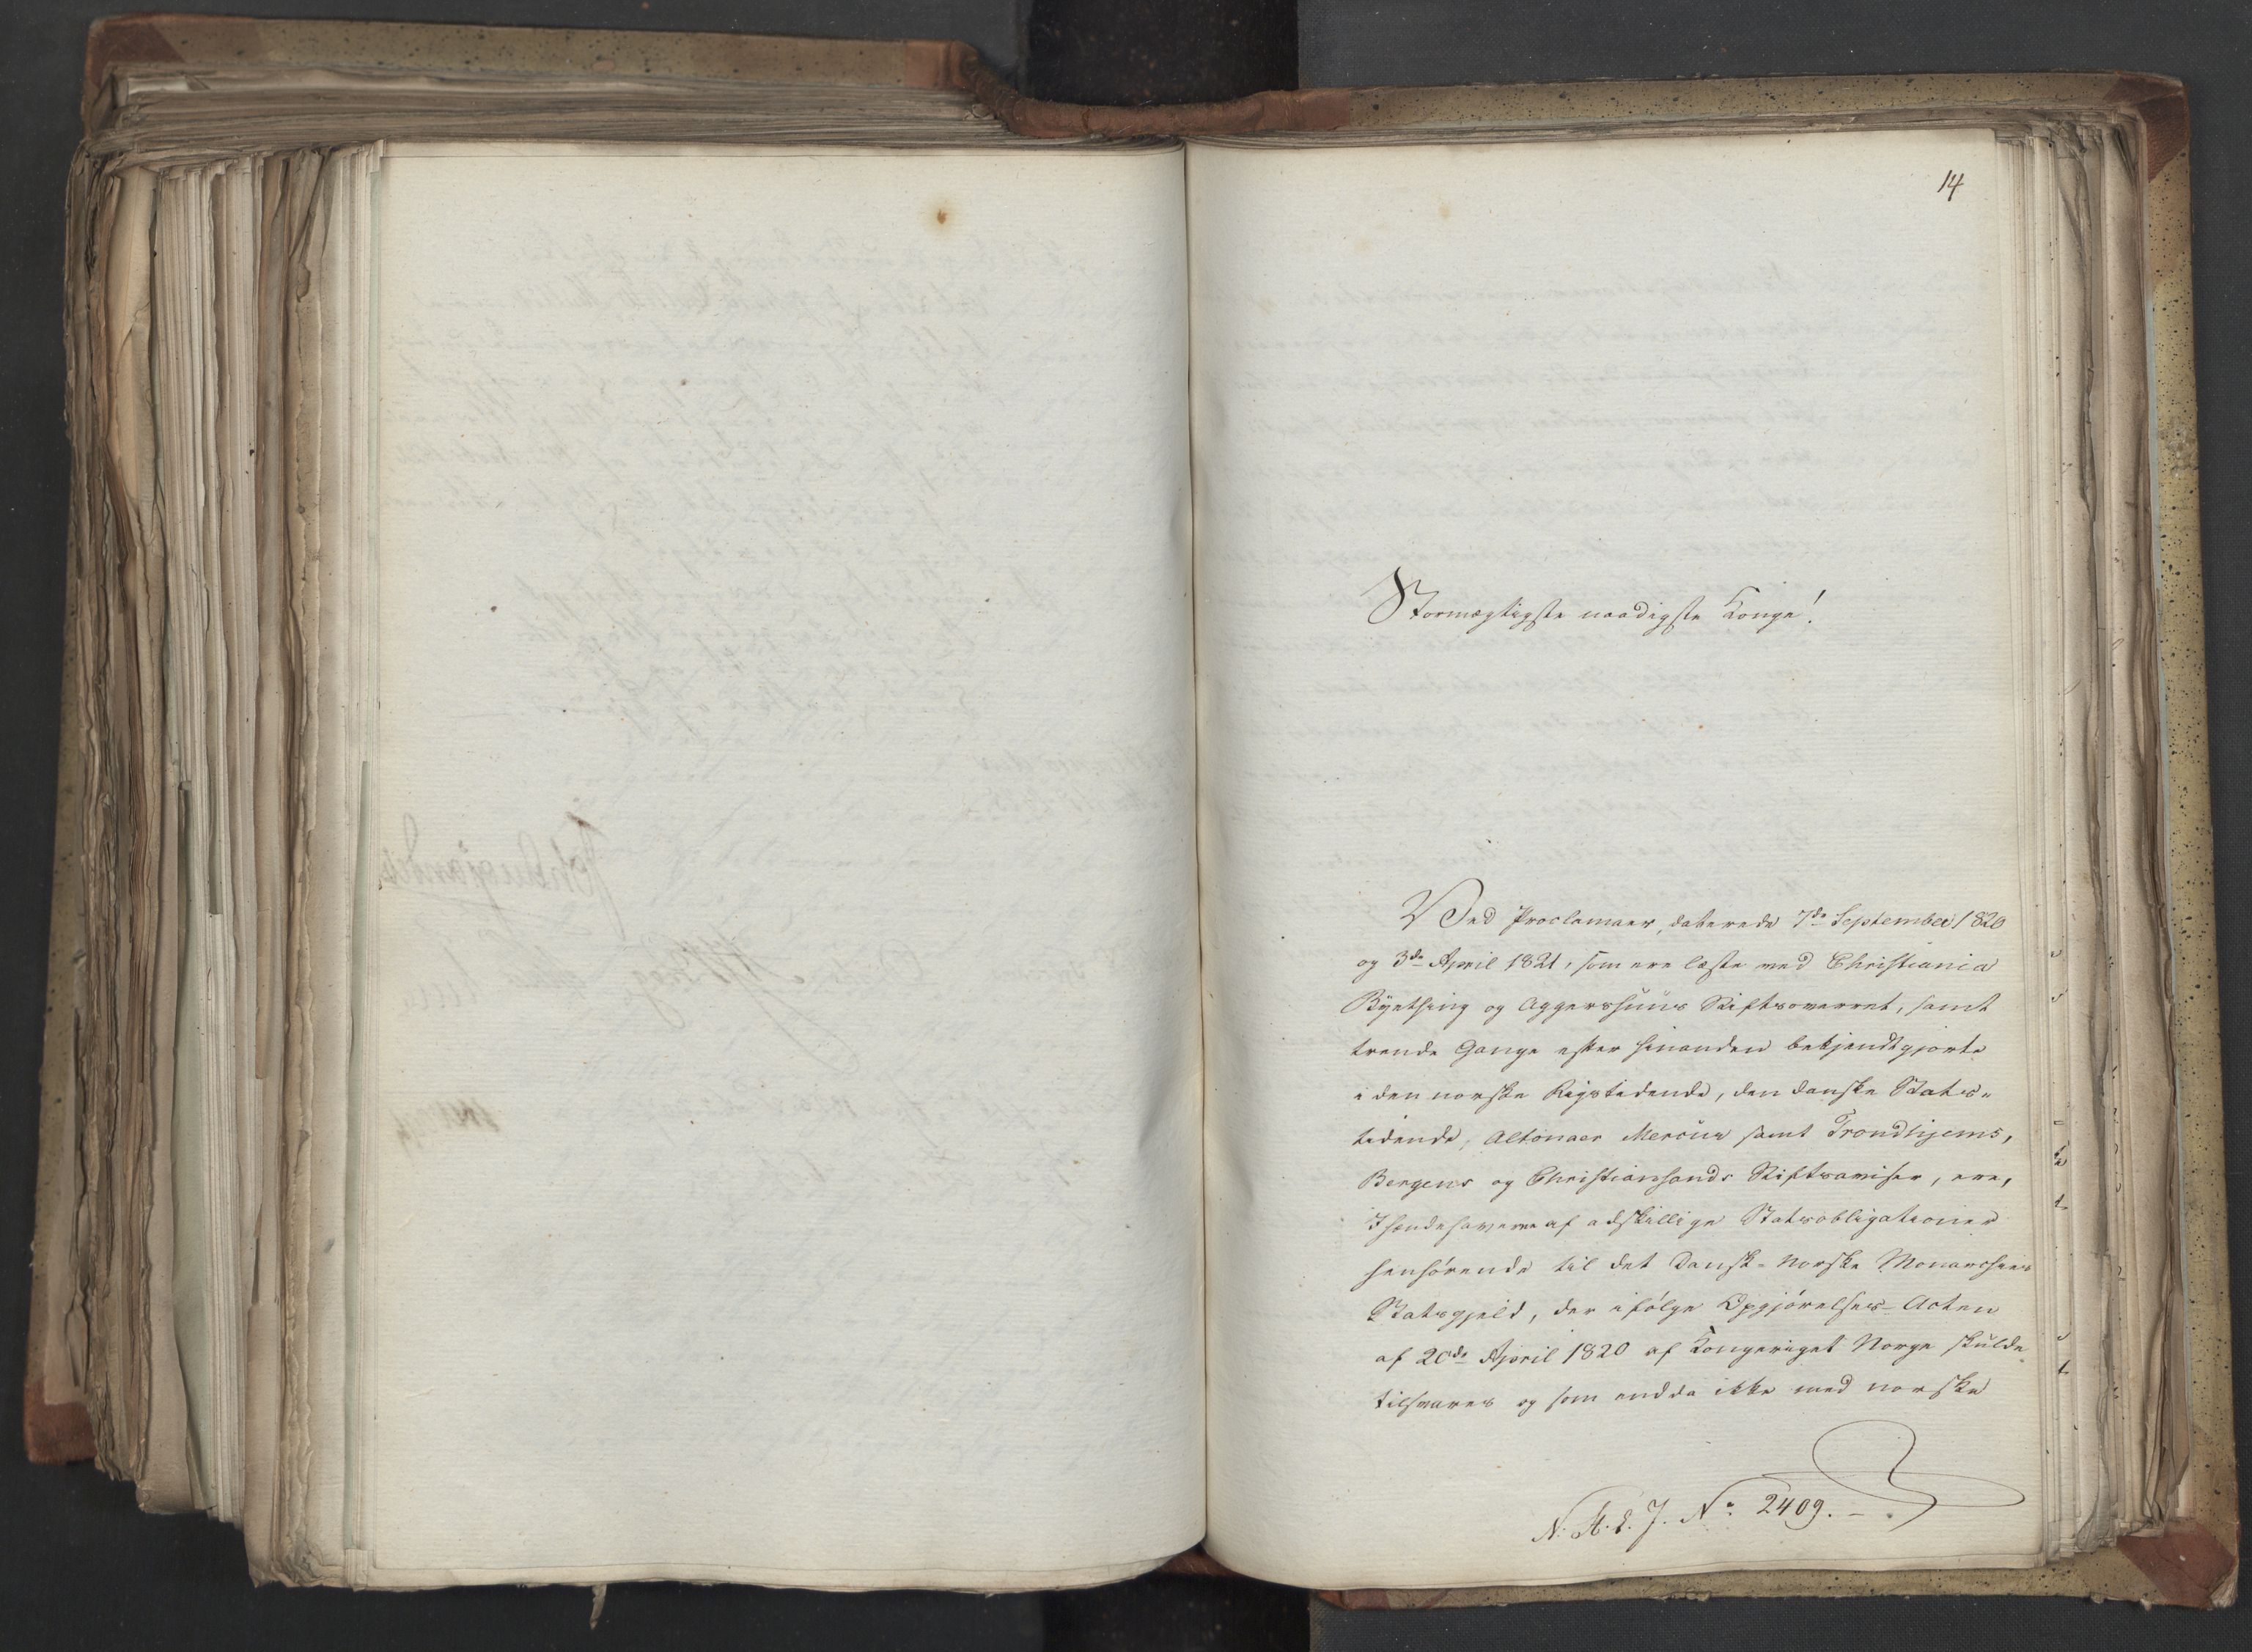 14
Stormægtigste naadigste Konge!
Ved Proclamaer, daterede 7de September 1820
og 3de April 1821, som ere læste ved Christiania
Byething og Aggershuus Stiftsoverret, samt
trende Gange efter hinanden bekjendtgjorte
i den norske Rigstidende, den danske Stats-
tidende, Altonaer Mercur samt Trondhjems,
Bergens og Christiansands Stiftsaviser, ere,
Ihændehaverne af adskillige Statsobligationer
henhørende til det Dansk-Norske Monarchies
Statsgjeld, der ifølge Opgjørelses-Acten
af 20de April 1820 af Kongeriget Norge skulde
tilsvares og som endda ikke med norske
N. A. E. J. No 2409.